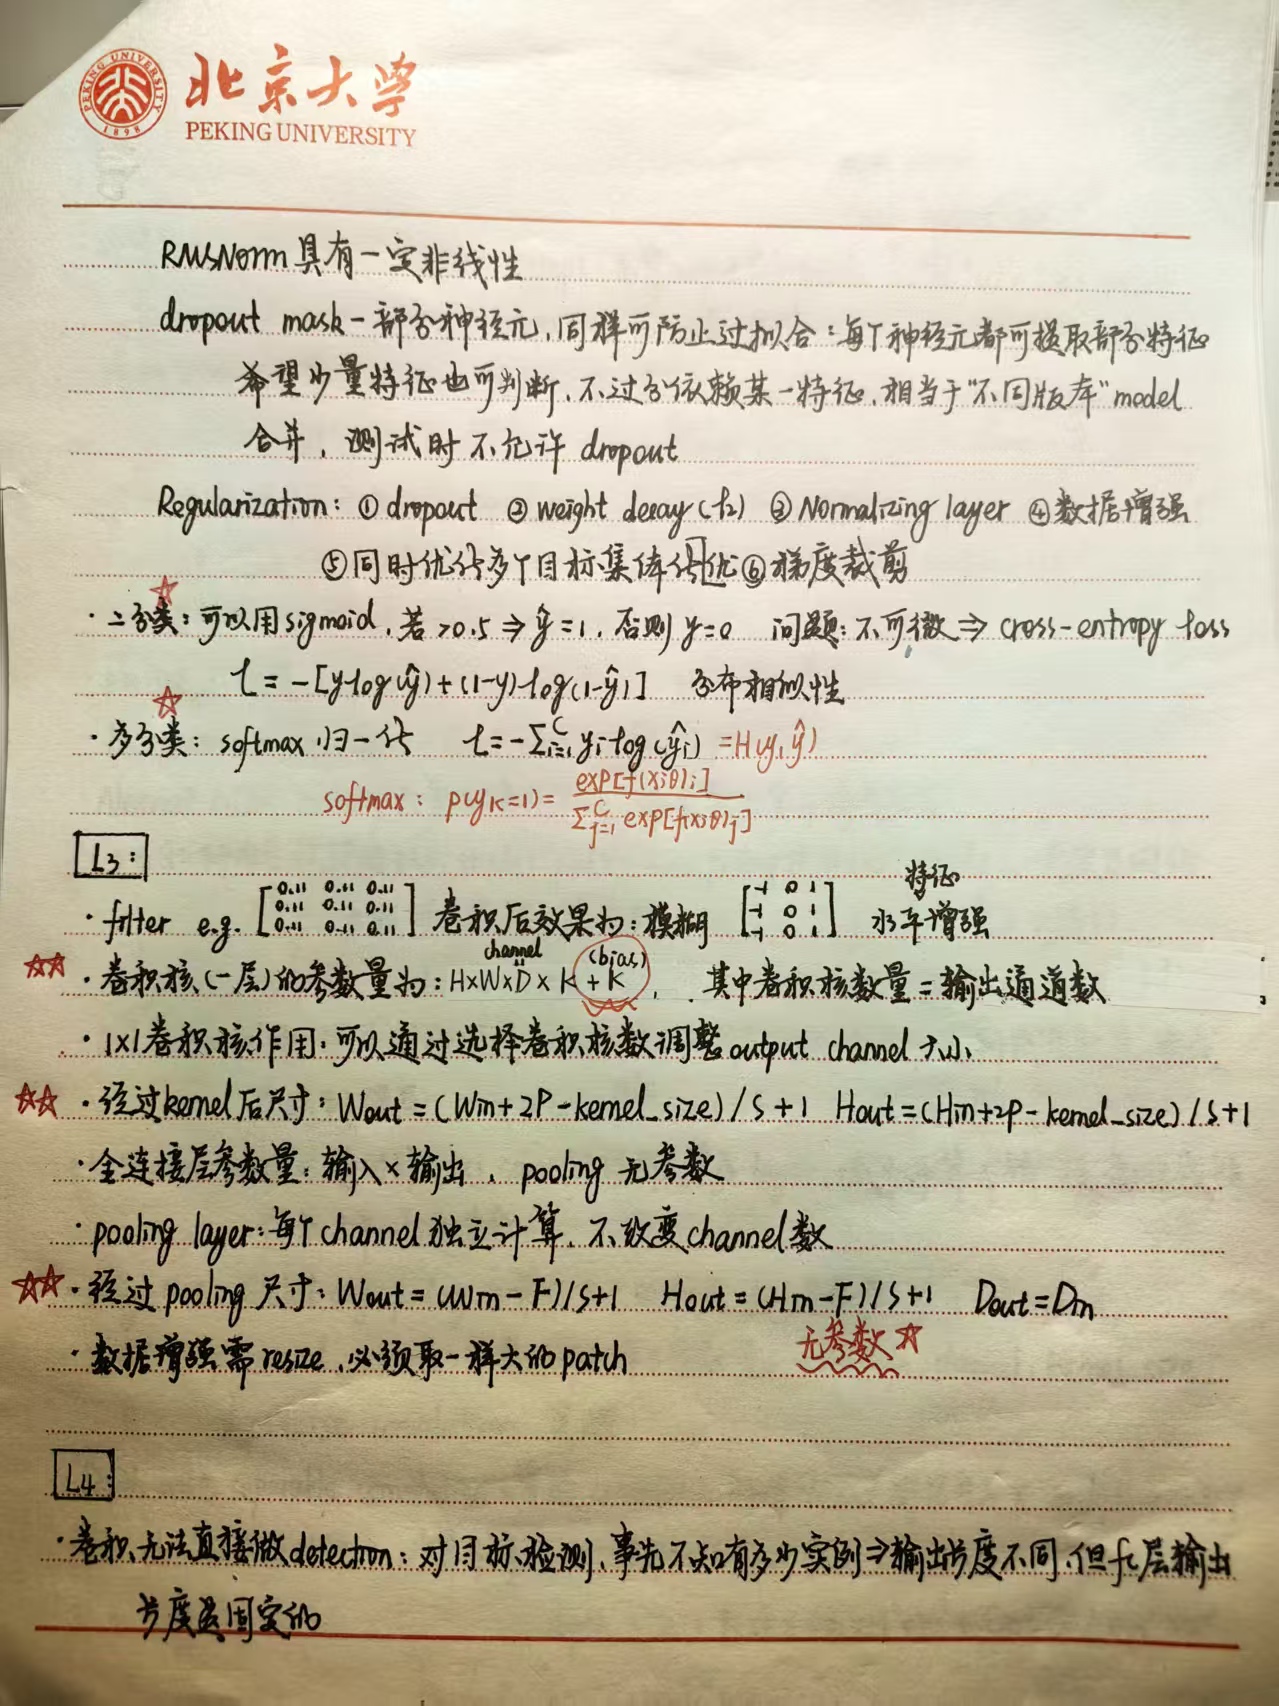 北京大学
PEKING UNIVERSITY
PEKING UNIVERSITY 1898
RMSNorm 具有一定非线性
dropout mask 一部分神经元,同样可防止过拟合:每个神经元都可提取部分特征
希望少量特征也可判断,不过分依赖某一特征,相当于"不同版本"model
合并,测试时不允许 dropout
Regularization: ① dropout ② weight decay (l2) ③ Normalizing layer ④数据增强
⑤同时优化多个目标,集体优 ⑥梯度裁剪
☆
· 二分类:可以用sigmoid,若>0.5⇒ŷ=1,否则y=0 问题:不可微⇒ cross-entropy loss
l = -[y·log(ŷ)+(1-y)·log(1-ŷ)] 分布相似性
☆
· 多分类: softmax 归一化 l=-∑ᵢ₌₁ᶜ yᵢ log(ŷᵢ) =H(y,ŷ)
softmax: p(yₖ=1)= exp[f(x;θ)ᵢ] / ∑ⱼ₌₁ᶜ exp[f(x;θ)ⱼ]
L3:
特征
· filter e.g. [0.11 0.11 0.11 卷积后效果为:模糊 [-1 0 1 水平增强
0.11 0.11 0.11 -1 0 1
0.11 0.11 0.11] -1 0 1]
channel (bias)
☆☆ · 卷积核(一层)的参数量为:H×W×D×K+K, 其中卷积核数量=输出通道数
· 1×1卷积核作用:可以通过选择卷积核数调整output channel大小
☆☆ · 经过kernel后尺寸: Wout=(Win+2P-kernel_size)/S+1 Hout=(Hin+2P-kernel_size)/S+1
· 全连接层参数量:输入×输出, pooling 无参数
· pooling layer:每个channel独立计算,不改变channel数
☆☆ · 经过 pooling 尺寸: Wout=(Win-F)/S+1 Hout=(Hin-F)/S+1 Dout=Din
无参数☆
· 数据增强需resize,必须取一样大的patch
L4:
· 卷积无法直接做detection:对目标检测,事先不知有多少实例⇒输出长度不同,但fc层输出
长度是固定的